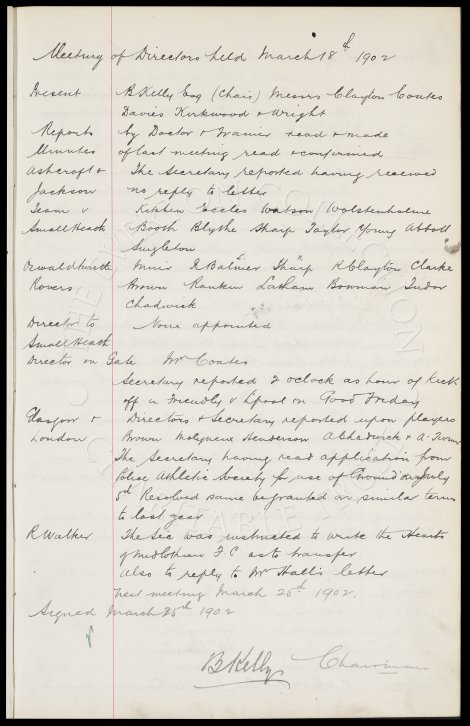 Meeting of Directors held March 18th 1902
Present B Kelly Esq (Chair) Messrs Clayton Coates
Davies Kirkwood & Wright
Reports by Doctor & Trainer read & made
Minutes of last meeting read & confirmed
Ashcroft & The Secretary reported having received
Jackson no reply to letter
Team v Kitchen Eccles Watson Wolstenholme
Small Heath Booth Blythe Sharp Taylor Young Abbott
Singleton
Oswaldtwistle Muir R Balmer Sharp R Clayton Clarke
Rovers Brown Rankin Latham Bowman Tudor
Chadwick
Director to None appointed
Small Heath
Director on Gate Mr Coates
Secretary reported 2 oclock as hour of Kick
off in Friendly v Lpool on Good Friday
Glasgow & Directors & Secretary reported upon players
London Brown Molyneux Henderson A Chadwick & A. Turner
The Secretary having read application from
Police Athletic Society for use of Ground on July
5th Resolved same be granted on similar terms
to last year
R Walker The Sec was instructed to write the Hearts
of Midlothian F C as to transfer
Also to reply to Mr Hall's letter
Next meeting March 25th 1902.
Signed March 25th 1902
B Kelly Chairman